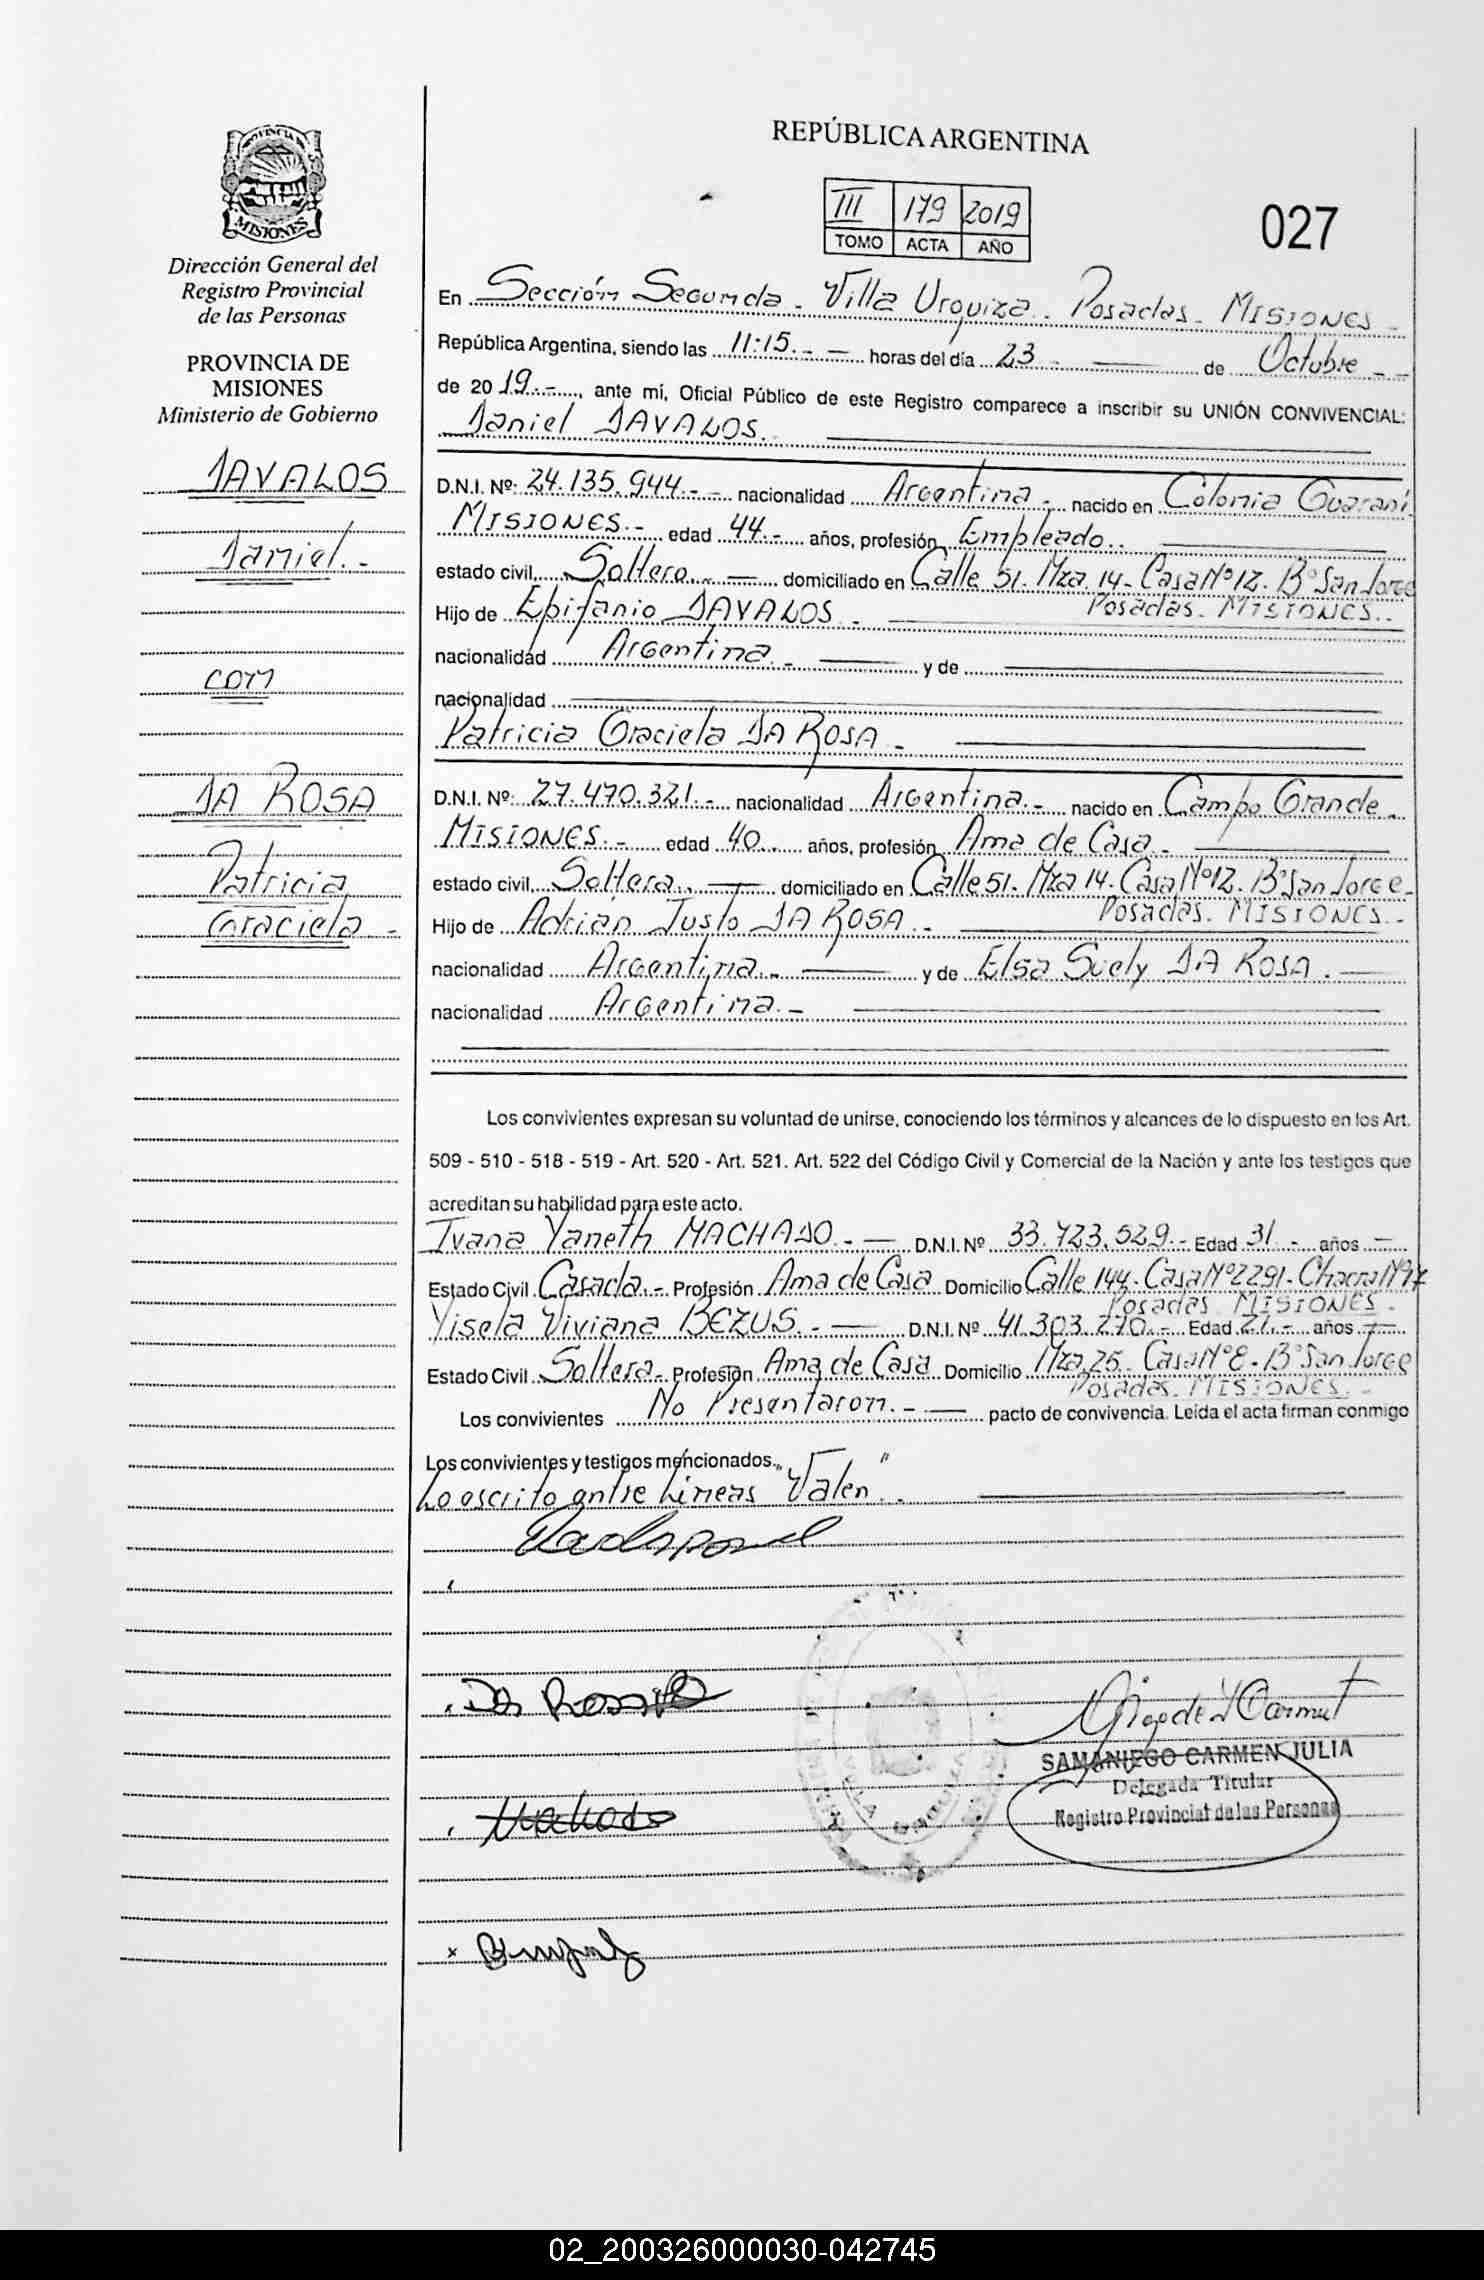 PROVINCIA DE
MISIONES
Dirección General del
Registro Provincial
de las Personas
PROVINCIA DE
MISIONES
Ministerio de Gobierno
DAVALOS
Daniel.-
con
DA ROSA
Patricia
Graciela -
REPÚBLICA ARGENTINA
III 179 2019
TOMO ACTA AÑO
027
En Sección Segunda - Villa Urquiza.. Posadas - MISIONES -
República Argentina, siendo las 11:15.- - horas del día 23 - de Octubre - -
de 2019.-, ante mí, Oficial Público de este Registro comparece a inscribir su UNIÓN CONVIVENCIAL:
Daniel DAVALOS.
D.N.I. Nº: 24.135.944.- - nacionalidad Argentina - nacido en Colonia Guaraní
MISIONES.- edad 44.- años, profesión Empleado..
estado civil Soltero.. - domiciliado en Calle 51. Mza. 14- Casa Nº 12. Bº San Jorge
Posadas. MISIONES..
Hijo de Epifanio DAVALOS -
nacionalidad Argentina.- y de
nacionalidad
Patricia Graciela DA ROSA -
D.N.I. Nº: 27.470.321.- nacionalidad Argentina.- nacido en Campo Grande -
MISIONES.- edad 40 años, profesión Ama de Casa -
estado civil Soltera.. - domiciliado en Calle 51. Mza 14- Casa Nº 12. Bº San Jorge -
Posadas. MISIONES.-
Hijo de Adrián Justo DA ROSA.-
nacionalidad Argentina.. y de Elsa Suely DA ROSA.
nacionalidad Argentina.-
Los convivientes expresan su voluntad de unirse, conociendo los términos y alcances de lo dispuesto en los Art.
509 - 510 - 518 - 519 - Art. 520 - Art. 521. Art. 522 del Código Civil y Comercial de la Nación y ante los testigos que
acreditan su habilidad para este acto.
Ivana Yaneth MACHADO.- - D.N.I. Nº 33.723.529.- Edad 31 - años -
Estado Civil Casada.- Profesión Ama de Casa Domicilio Calle 144- Casa Nº 2291- Chacra Nº 97
Posadas MISIONES -
Yisela Viviana BEZUS.- - D.N.I. Nº 41.303.270.- Edad 21.- años -
Estado Civil Soltera- Profesión Ama de Casa Domicilio Mza. 25.. Casa Nº 8- Bº San Jorge
Posadas. MISIONES.-
Los convivientes No Presentaron.- - pacto de convivencia. Leída el acta firman conmigo
Los convivientes y testigos mencionados.
Lo escrito entre Lineas "Valen"..
Da Rosa
Machado
SAMANIEGO CARMEN JULIA
Delegada Titular
Registro Provincial de las Personas
02_200326000030-042745